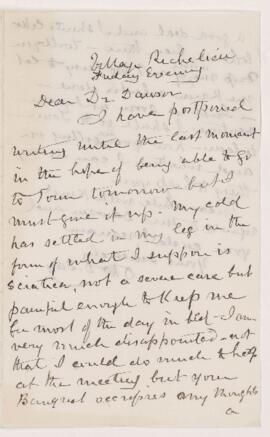 Village Richelieu
Friday Evening
Dear Dr Dawson
I have postponed
writing until the last moment
in the hope of being able to go
to Town tomorrow but I
must give it up. My cold
has settled in my leg in the
form of what I suppose is
sciatica, not a severe case but
painful enough to keep me
for most of the day in bed - I am
very much disappointed - not
that I could do much to help
at the meeting but your
Banquet occupies my thoughts
a